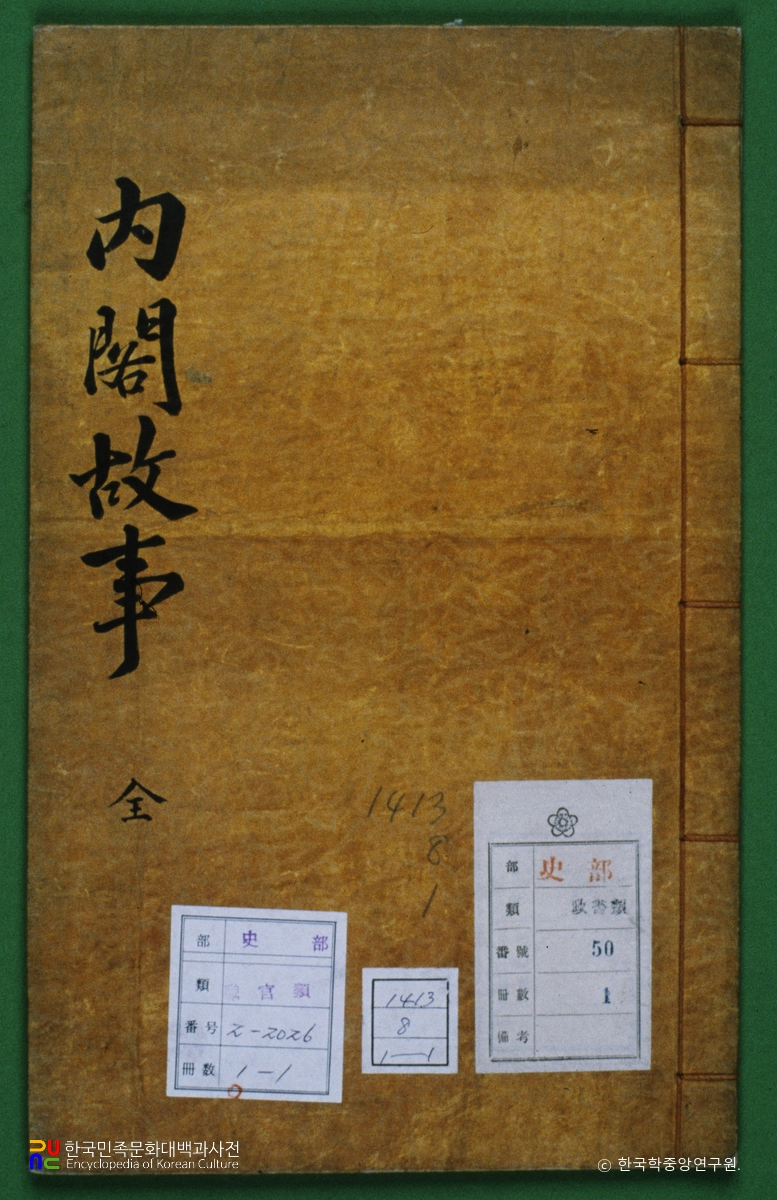 內閣故事
全
1413
8
1
部 史部
類 政書類
番號 50
冊數 1
備考
部 史部
類 官類
番号 2-2026
冊數 1-1
1413
8
1-1
한국민족문화대백과사전
Encyclopedia of Korean Culture
© 한국학중앙연구원.